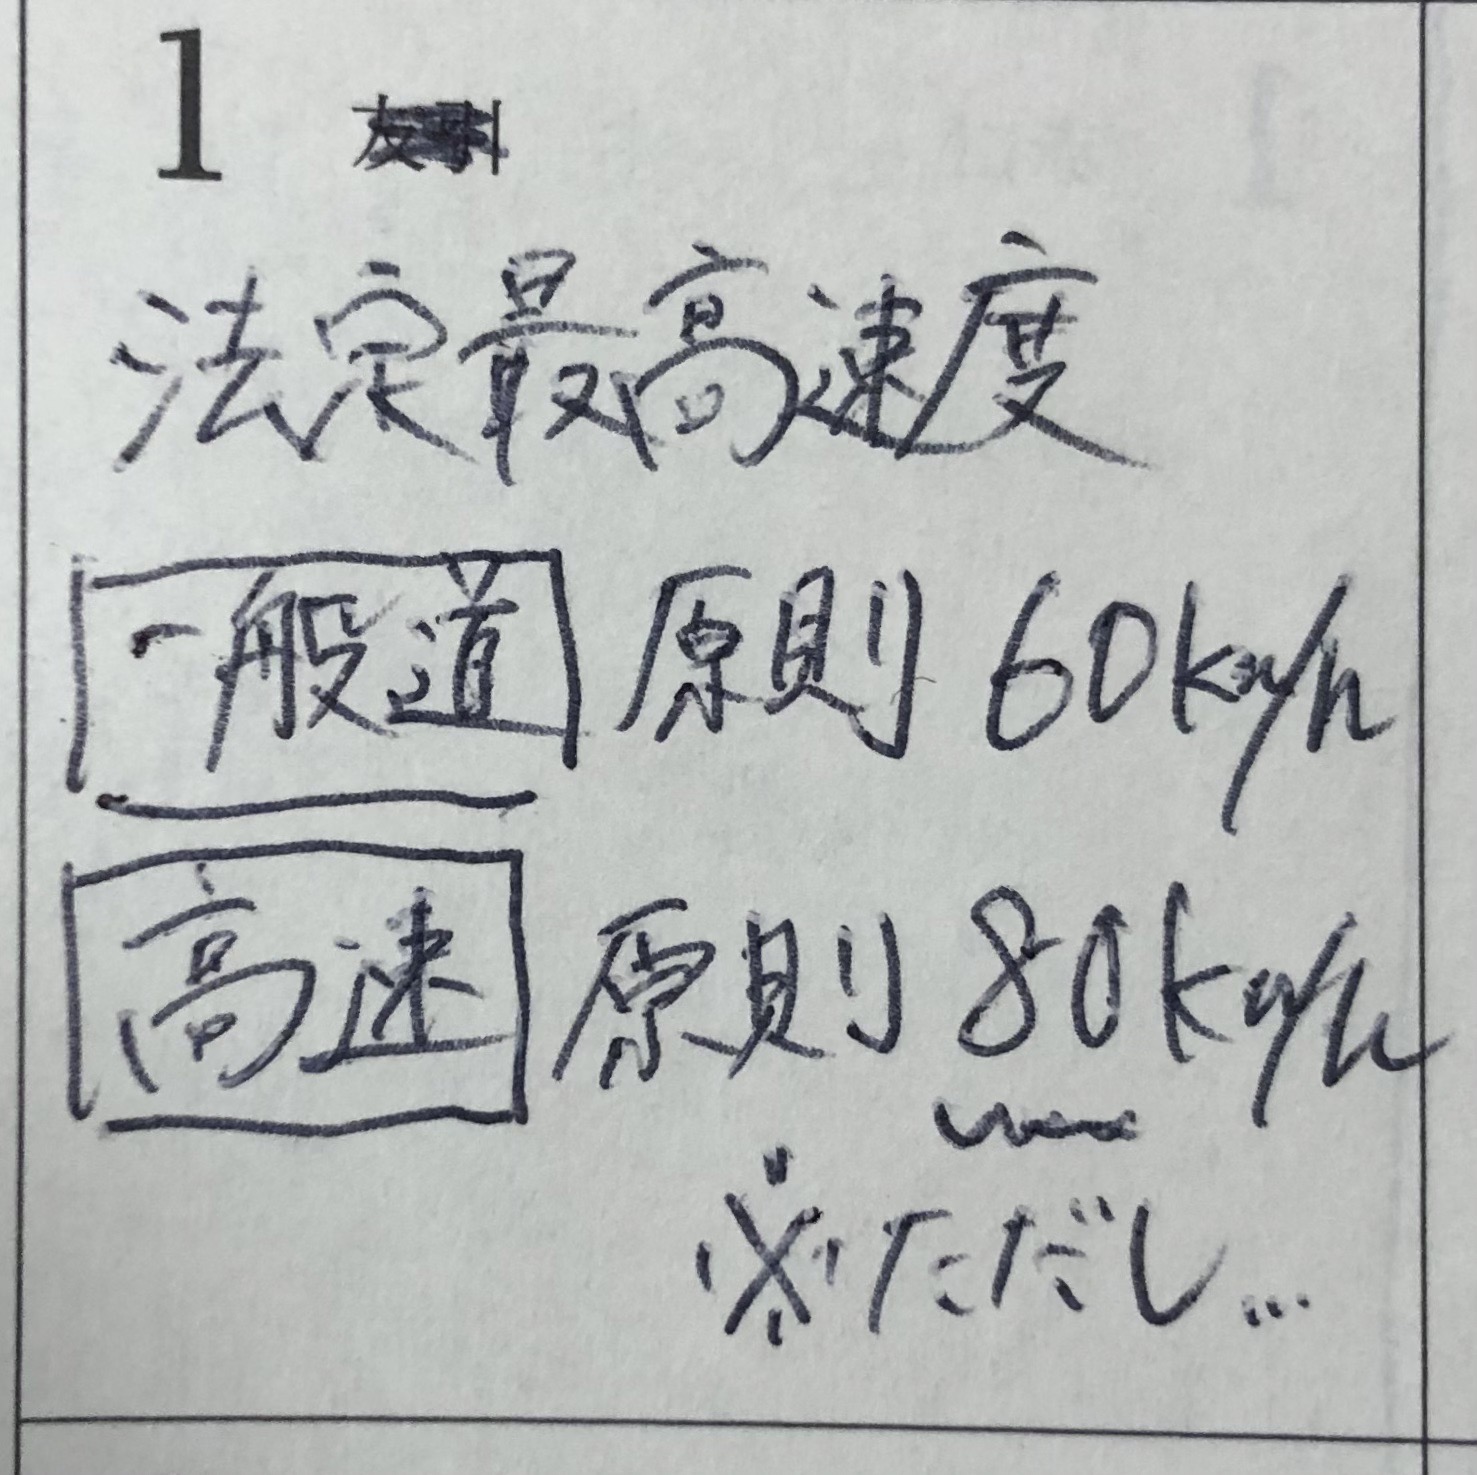 1
法定最高速度
一般道 原則 60km/h
高速 原則 80km/h
※ただし…